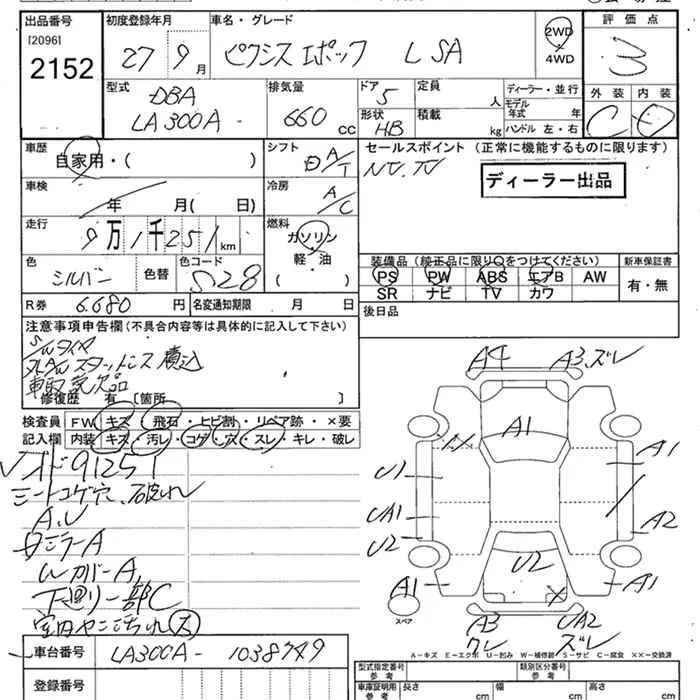 出品番号 初度登録年月 車名・グレード 評価点
[2096]
2152 27年9月 ピクシス エポック L SA 2WD 4WD 3
型式 排気量 ドア 定員 ディーラー・並行 外装 内装
DBA LA300A 660 CC 5 人 モデル年式 年 C D
形状 HB 積載 kg ハンドル 左・右
車歴 シフト セールスポイント (正常に機能するものに限ります)
自家用・( ) A/T NV.TV
ディーラー出品
車検 年 月( 日) 冷房 A/C
走行 9万1千251km 燃料 ガソリン 軽・油 ( )
装備品 (純正品に限り○をつけてください) 新車保証書
色 シルバー 色替 色コード S28
PS PW ABS エアB AW 有・無
SR ナビ TV カワ
R券 6.680 円 名変通知期限 月 日 後日品
注意事項申告欄 (不具合内容等は具体的に記入して下さい)
S/Wタイヤ
スタッドレス 積込
車取 欠品
修復歴 有 〔箇所 〕
検査員 FW キズ・飛石・ヒビ割・リペア跡・×要
記入欄 内装 キズ・汚レ・コゲ・穴・スレ・キレ・破レ
91251
シートコゲ穴
A.U
ミラーA
Wカバー A
下廻り一部C
室内ヤニ汚れ 大
A4 A3.ズレ
A1
U1
A1
UA1
A2
U2
U2
A1
A1
スペア
A3 ワレ UA2 ズレ
A-キズ E-エクボ U-凹み W-補修跡 S-サビ C-腐食 ××-交換済
車台番号 LA300A - 1038749
型式指定番号 参考 類別区分番号 参考
登録番号 車庫証明用 参考 長さ cm 幅 cm 高さ cm